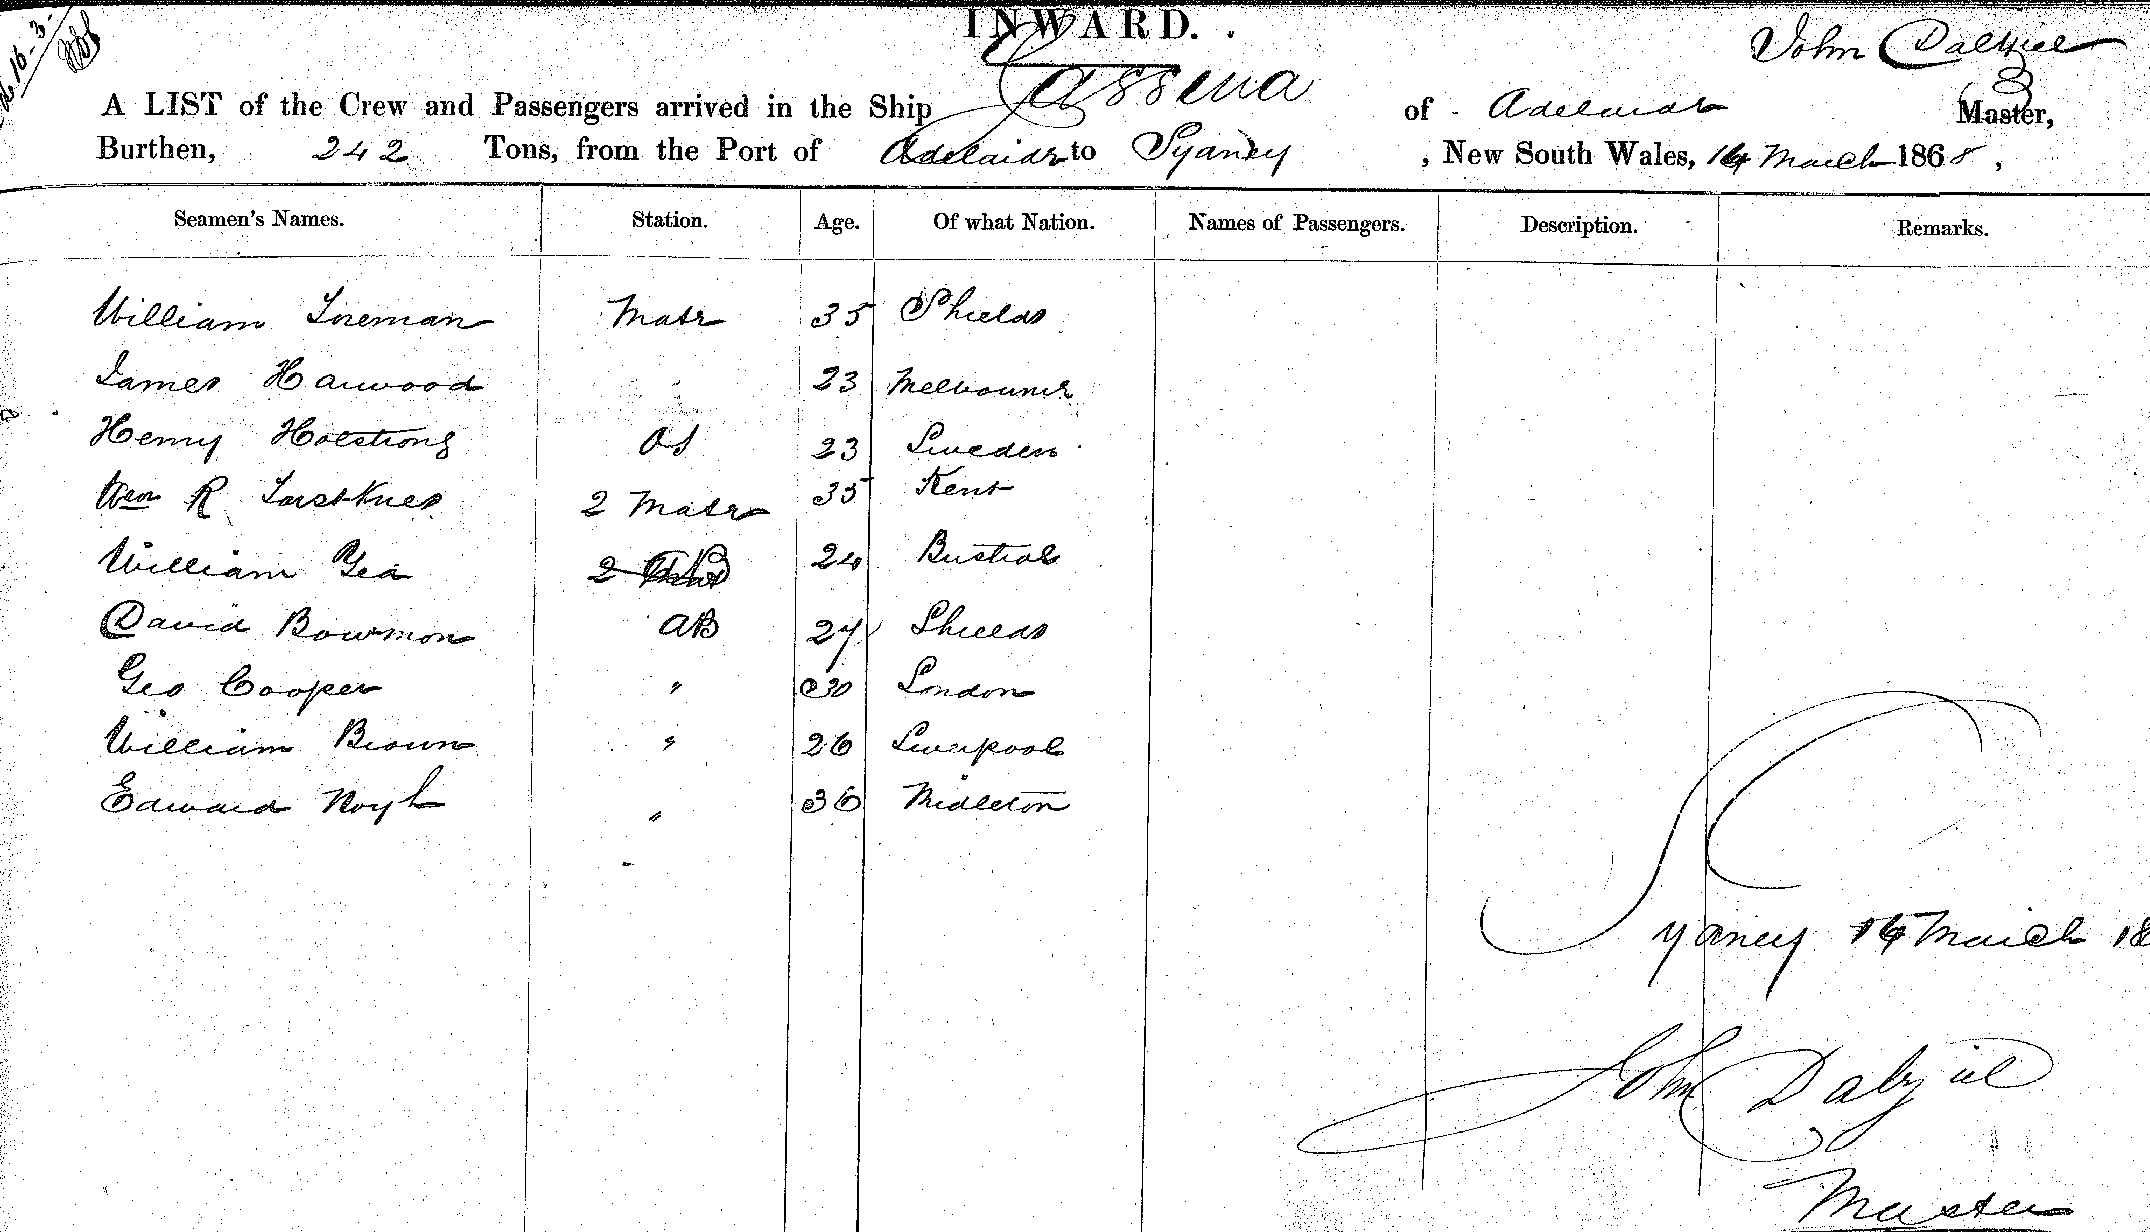 INWARD.
16-3-
John Dalziel
A LIST of the Crew and Passengers arrived in the Ship Cassena of Adelaide Master,
Burthen, 242 Tons, from the Port of Adelaide to Sydney, New South Wales, March 1868,
Seamen's Names. Station. Age. Of what Nation. Names of Passengers. Description. Remarks.
William Mate 35 Shields
James Harwood " 23 Melbourne
Henry Holstrong OS 23 Sweden
Wm R 2 Mate 35 Kent
William Yea 24 Bristol
David Bowmon AB 27 Shields
Geo Cooper " 30 London
William Brown " 26 Liverpool
Edward " 36 Midleton
Sydney March 18
John Dalziel
Master